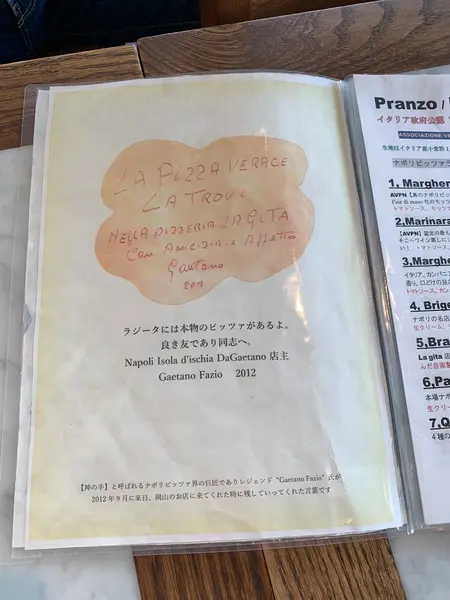 LA PIZZA VERACE
LA TROVI
NELLA PIZZERIA LA GITA
Con AMICIZIA e AFFETTO
Gaetano
2012
ラジータには本物のピッツァがあるよ。
良き友であり同志へ。
Napoli Isola d'ischia DaGaetano 店主
Gaetano Fazio 2012
【神の手】と呼ばれるナポリピッツァ界の巨匠でありレジェンド "Gaetano Fazio" 氏が
2012年9月に来日、岡山のお店に来てくれた時に残していってくれた言葉です
Pranzo /
イタリア政府公認
ASSOCIAZIONE VE
生地はイタリア産小麦粉1
ナポリピッツァ
1, Margher
AVPN【真のナポリピ
Fior di mano 社のモッツ
トマトソース、モッツァ
2,Marinara
【AVPN】認定の最も
そこへワイン蒸しに
い! トマトソース、
3,Marghe
イタリア、カンパニア
香り、口どけの良さ
トマトソース、カン
4, Brige
ナポリの名店
生クリーム、
5,Bra
La gita 店
んだ自家製
6,Pa
本場ナポ
生クリー
7,Q
4種の